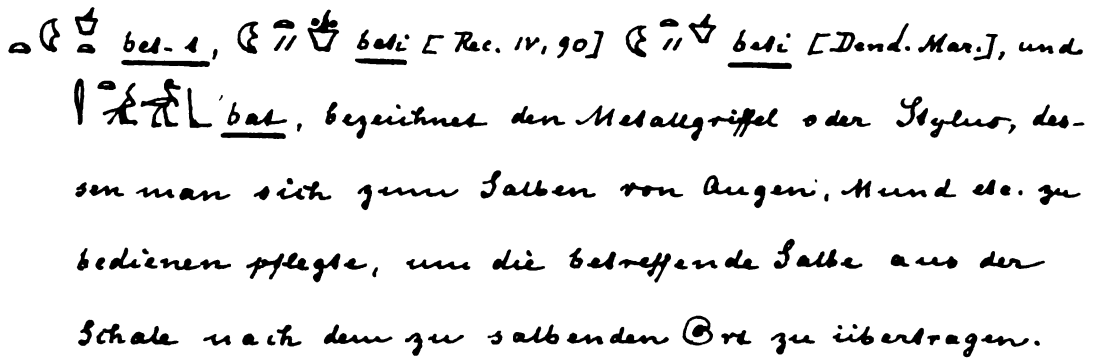 bet-t, beti [Rec. IV, 90] beti [Dend. Mar.], und
bat, bezeichnet den Metallgriffel oder Stylus, des-
sen man sich zum Salben von Augen, Mund etc. zu
bedienen pflegte, um die betreffende Salbe aus der
Schale nach dem zu salbenden Ort zu übertragen.